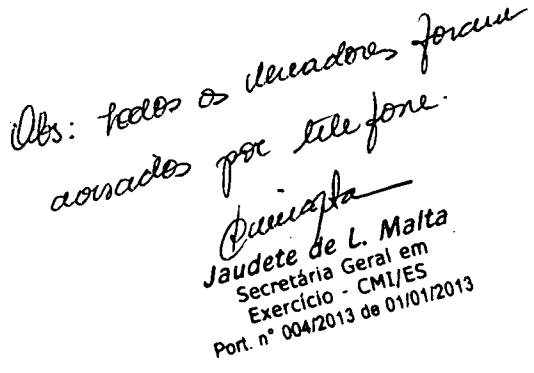 Obs: todos os vereadores foram
avisados por telefone.
Jaudete de L. Malta
Secretária Geral em
Exercício - CMI/ES
Port. n° 004/2013 de 01/01/2013